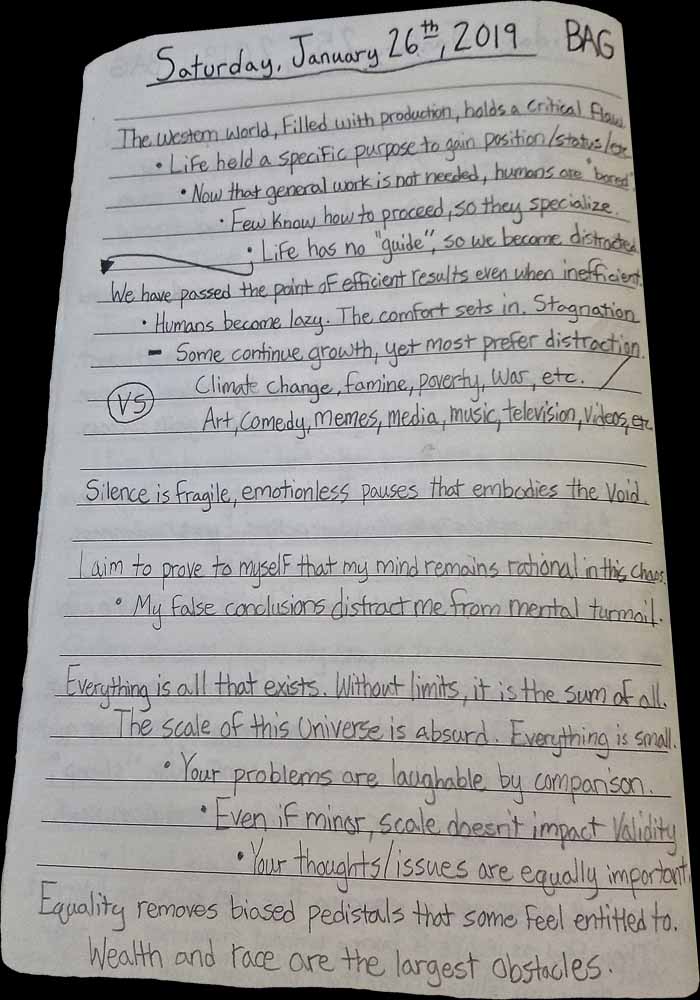 Saturday, January 26th, 2019 BAG
The western world, filled with production, holds a critical flaw
• Life held a specific purpose to gain position/status/etc
• Now that general work is not needed, humans are "bored".
• Few know how to proceed, so they specialize.
• Life has no "guide", so we become distracted
We have passed the point of efficient results even when inefficient.
• Humans become lazy. The comfort sets in. Stagnation
- Some continue growth, yet most prefer distraction.
Climate change, famine, poverty, war, etc.
VS
Art, comedy, memes, media, music, television, videos, etc
Silence is fragile, emotionless pauses that embodies the void.
I aim to prove to myself that my mind remains rational in this chaos.
• My false conclusions distract me from mental turmoil.
Everything is all that exists. Without limits, it is the sum of all.
The scale of this Universe is absurd. Everything is small.
• Your problems are laughable by comparison.
• Even if minor, scale doesn't impact validity
• Your thoughts/issues are equally important.
Equality removes biased pedistals that some feel entitled to.
Wealth and race are the largest obstacles.